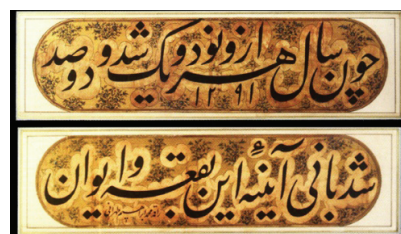 چون سال هزار و نود و یک شد و دو صد
۱۲۹۱
شد بانی آینهٔ این بقعه و ایوان